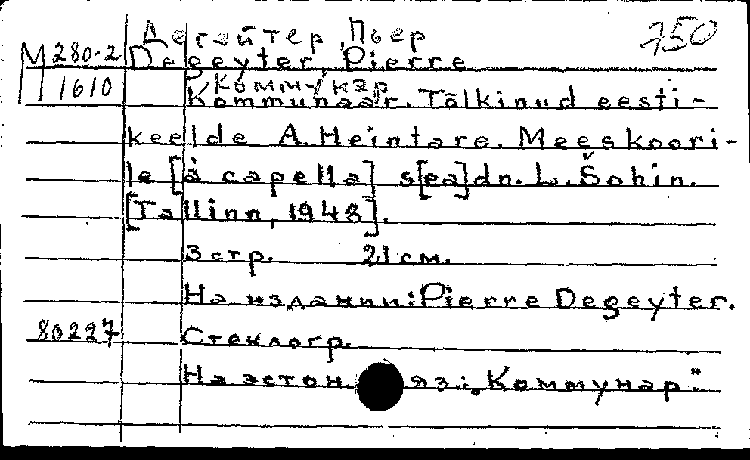 Дегейтер, Пьер 750
М 280-2 Degeyter, Pierre
1610 Коммунар
Kommunaar. Tõlkinud eesti-
keelde A. Heintare. Meeskoori-
le [à capella] s[ea]dn. L. Šohin.
[Tallinn, 1948].
3 стр. 21 см.
На издании: Pierre Degeyter.
80227 Стеклогр.
На эстон. яз.: "Коммунар".